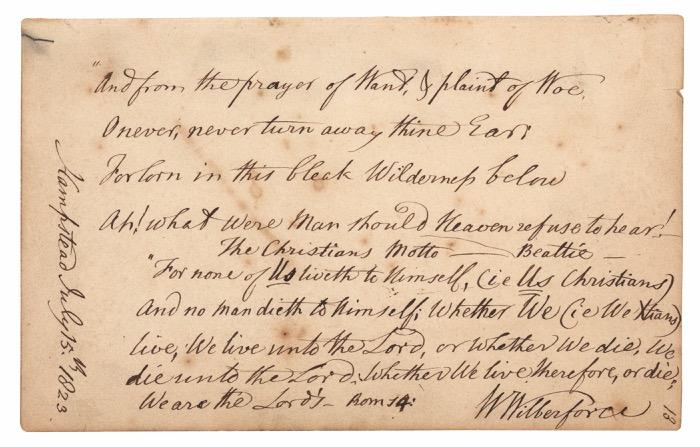 "And from the prayer of Want, & plaint of Woe,
O never, never turn away thine Ear:
Forlorn in this bleak Wilderness below
Ah! what were Man should Heaven refuse to hear!
The Christians Motto — Beattie —
"For none of Us liveth to himself, (ie Us Christians)
And no man dieth to himself; Whether We (ie We Xtians)
live, We live unto the Lord, or whether We die, We
die unto the Lord. Whether We live therefore, or die,
We are the Lord's — Rom 14:
W Wilberforce
Hampstead July 15:th 1823